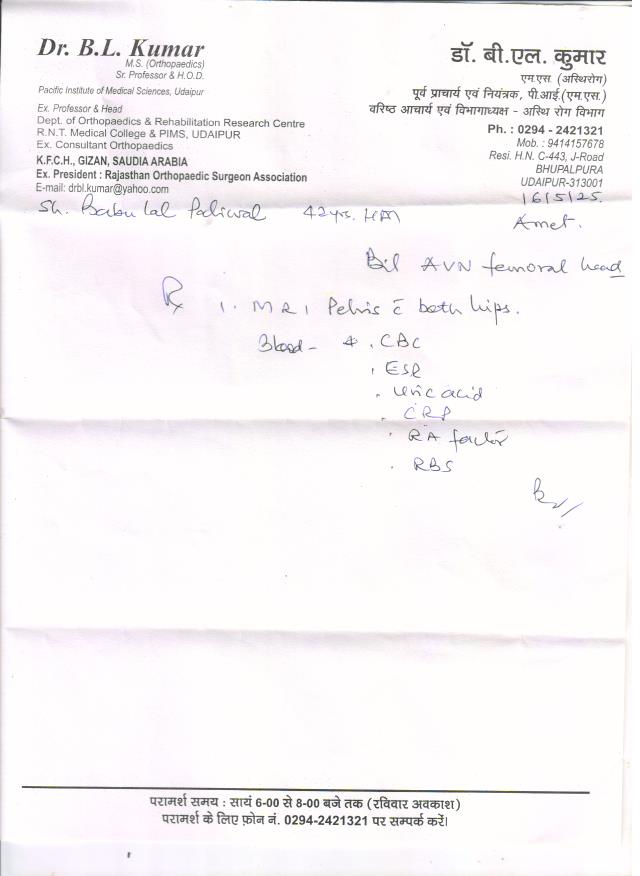 Dr. B.L. Kumar
M.S. (Orthopaedics)
Sr. Professor & H.O.D.
Pacific Institute of Medical Sciences, Udaipur
Ex. Professor & Head
Dept. of Orthopaedics & Rehabilitation Research Centre
R.N.T. Medical College & PIMS, UDAIPUR
Ex. Consultant Orthopaedics
K.F.C.H., GIZAN, SAUDIA ARABIA
Ex. President : Rajasthan Orthopaedic Surgeon Association
E-mail: drbl.kumar@yahoo.com
डॉ. बी.एल. कुमार
एम.एस. (अस्थिरोग)
पूर्व प्राचार्य एवं नियंत्रक, पी.आई.(एम.एस.)
वरिष्ठ आचार्य एवं विभागाध्यक्ष - अस्थि रोग विभाग
Ph. : 0294 - 2421321
Mob. : 9414157678
Resi. H.N. C-443, J-Road
BHUPALPURA
UDAIPUR-313001
16/5/25.
Sh. Babulal Paliwal 42yrs. HM
Amet.
Bil AVN femoral head
Rx 1. MRI Pelvis c̄ both hips.
Blood - . CBC
. ESR
. Uric acid
. CRP
. RA factor
. RBS
परामर्श समय : सायं 6-00 से 8-00 बजे तक (रविवार अवकाश)
परामर्श के लिए फ़ोन नं. 0294-2421321 पर सम्पर्क करें।